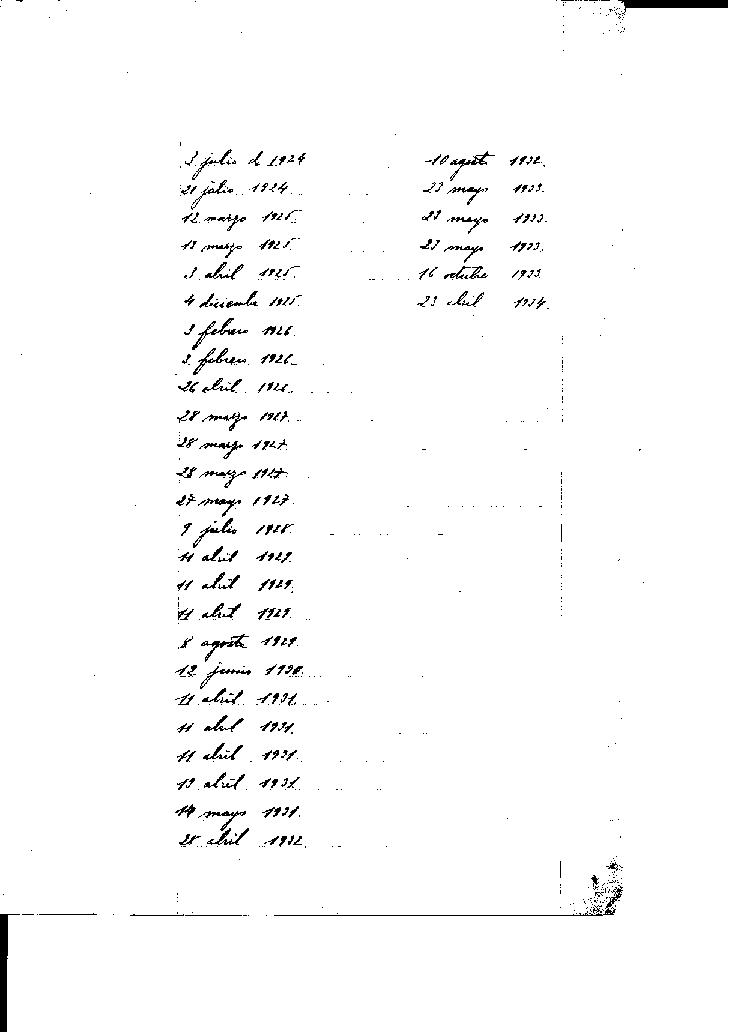 3 julio de 1924
21 julio 1924
12 marzo 1925
13 marzo 1925
3 abril 1925
4 diciembre 1925
3 febrero 1926
3 febrero 1926
26 abril 1926
28 marzo 1927
28 marzo 1927
28 marzo 1927
27 mayo 1927
9 julio 1928
11 abril 1929
11 abril 1929
11 abril 1929
8 agosto 1929
12 junio 1930
11 abril 1931
11 abril 1931
11 abril 1931
13 abril 1931
14 mayo 1931
28 abril 1932
10 agosto 1932
23 mayo 1933
23 mayo 1933
23 mayo 1933
16 octubre 1933
23 abril 1934